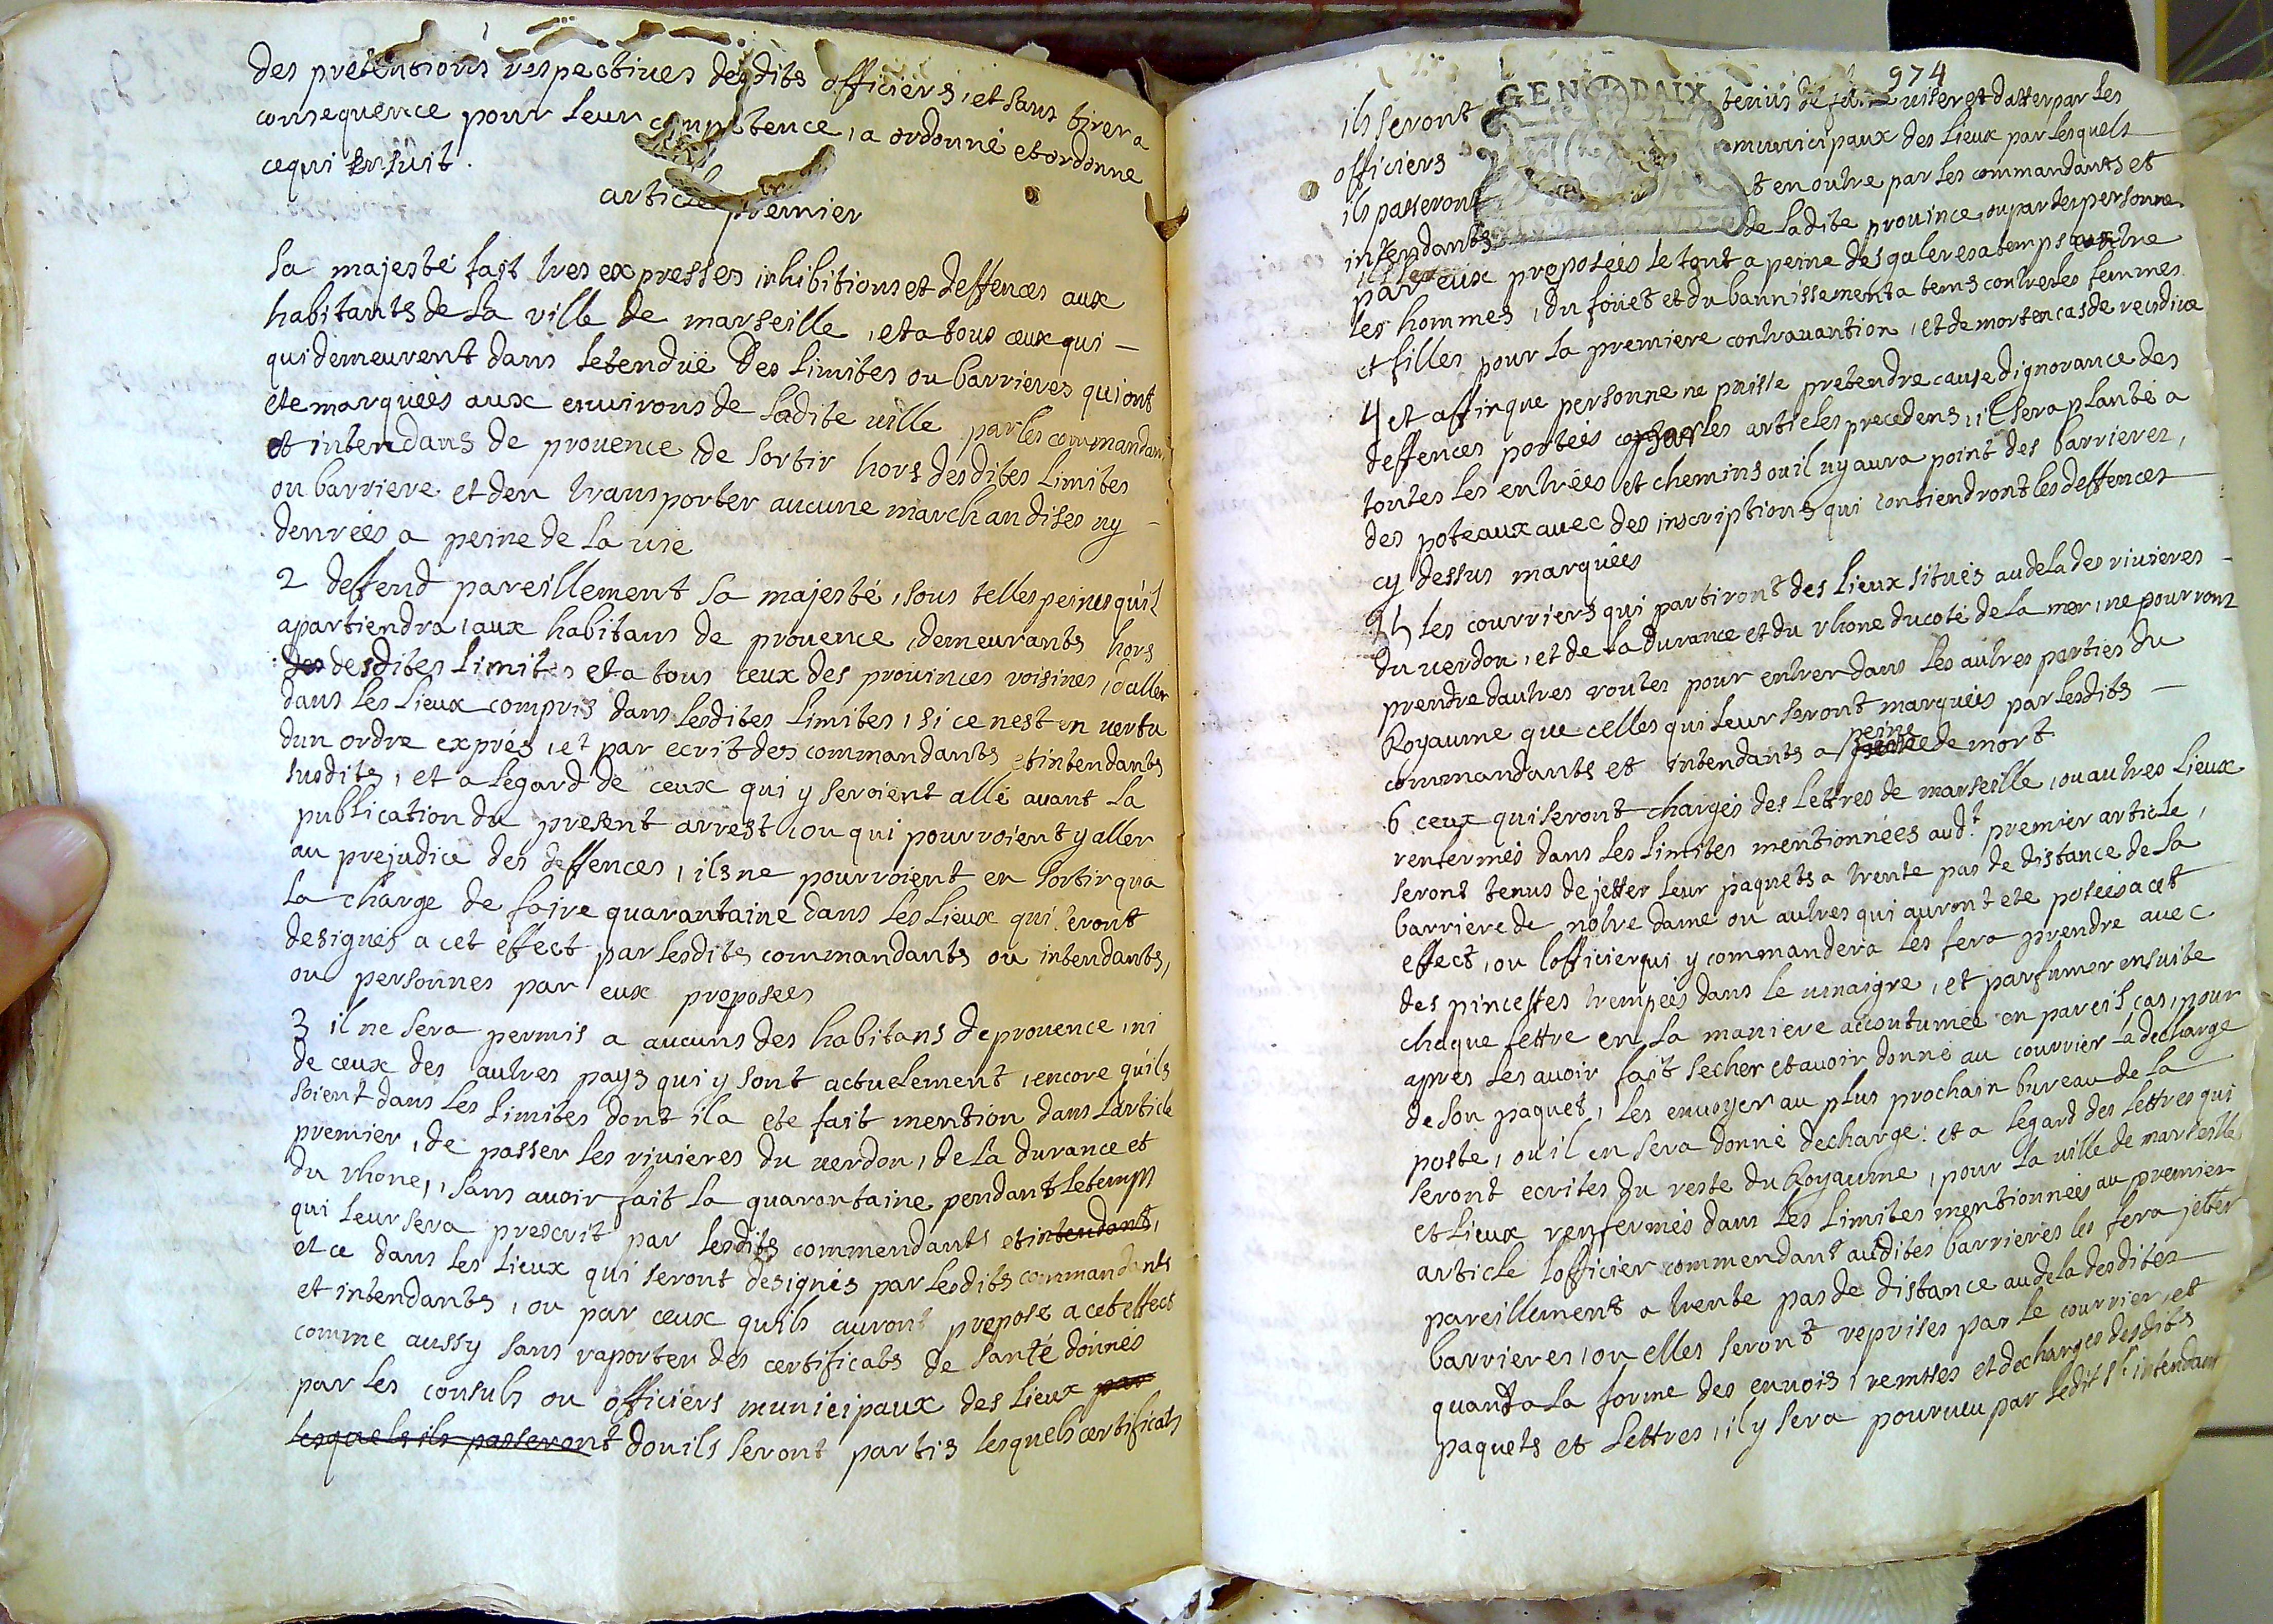 des prétentions respectives desdits officiers, et sans tirer a
consequence pour leur competence, a ordonné et ordonne
cequi ensuit.
article premier
sa majesté fait tres expresses inhibitions et deffences aux
habitants de la ville de marseille, et a tous ceux qui —
qui demeurent dans letenduë des limites ou barrieres qui ont
ete marquées aux environs de ladite ville par les commandans
et intendans de prouence de sortir hors desdites limites
ou barriere et den transporter aucune marchandises ny —
denrées a peine de la uie
2 deffend pareillement sa majesté, sous telles peines qu'il
apartiendra, aux habitans de prouence, demeurants hors
des desdites limites et a tous ceux des prouinces voisines, daller
dans les lieux compris dans lesdites limites, si ce nest en uertu
dun ordre exprés, et par ecrit des commandants et intendants
susdits, et a legard de ceux qui y seroient allé auant la
publication du present arrest, ou qui pourroient y aller
au prejudice des deffences, ils ne pourroient en sortir qua
la charge de faire quarantaine dans les lieux qui seront
designés a cet effect par lesdits commandants ou intendants,
ou personnes par eux proposees
3 il ne sera permis a aucuns des habitans de prouence, ni
de ceux des autres pays qui y sont actuelement, encore qu'ils
soient dans les limites dont il a ete fait mention dans larticle
premier, de passer les riuieres du uerdon, de la durance et
du rhone, sans auoir fait la quarantaine pendant le temps
qui leur sera prescrit par lesdits commendants et intendants,
et ce dans les lieux qui seront designés par lesdits commandants
et intendants, ou par ceux quils auront proposé a cet effect
comme aussy sans raporter des certificats de santé donnés
par les consuls ou officiers municipaux des lieux par
lesquels ils passeront douils seront partis lesquels certificats
974
GEN DAIX
ils seront tenus de faire uiser et datter par les
officiers municipaux des lieux par lesquels
ils passeront et en outre par les commandants et
intendants de ladite prouince, ou par des personne
par eux proposées le tout a peine des galeres a temps contre
les hommes, du foüet et du bannissement a tems contre les femmes
et filles pour la premiere contrauantion, et de mort en cas de recidiue
4 et affinque personne ne puisse pretendre cause dignorance des
deffences portées par les articles precedens, il sera planté a
toutes les entrées et chemins ou il ny aura point des barrieres,
des poteaux auec des inscriptions qui contiendront les deffences
cy dessus marquées
5 les courriers qui partiront des lieux situés au dela des riuieres
du uerdon, et de la durance et du rhone ducoté de la mer, ne pourront
prendre dautres routes pour entrer dans les autres parties du
Royaume que celles qui leur seront marquées par lesdits —
peine
commandants et intendants a de mort
6 ceux qui seront chargés des lettres de marseille, ou autres lieux
renfermés dans les limites mentionnées aud.t premier article,
seront tenus de jetter leur paquets a trente pas de distance de la
barriere de nôtre dame ou autres qui auront ete posées a cet
effect, ou lofficier qui y commandera les fera prendre auec
des pincettes trempées dans le uinaigre, et parfumer ensuite
chaque lettre en la maniere accoutumée en pareil cas, pour
apres les auoir fait secher et auoir donné au courrier la decharge
de son paquet, les enuoyer au plus prochain bureau de la
poste, ou il en sera donné decharge: et a legard des lettres qui
seront ecrites du reste du Royaume, pour la uille de marseille
et lieux renfermés dans les limites mentionnées au premier
article lofficier commendant audites barrieres les fera jetter
pareillement a trente pas de distance au dela desdites
barrieres, ou elles seront reprises par le courrier, et
quant a la forme des enuois, remises et decharges desdits
paquets et lettres, il y sera pourueu par ledit s.r intendant